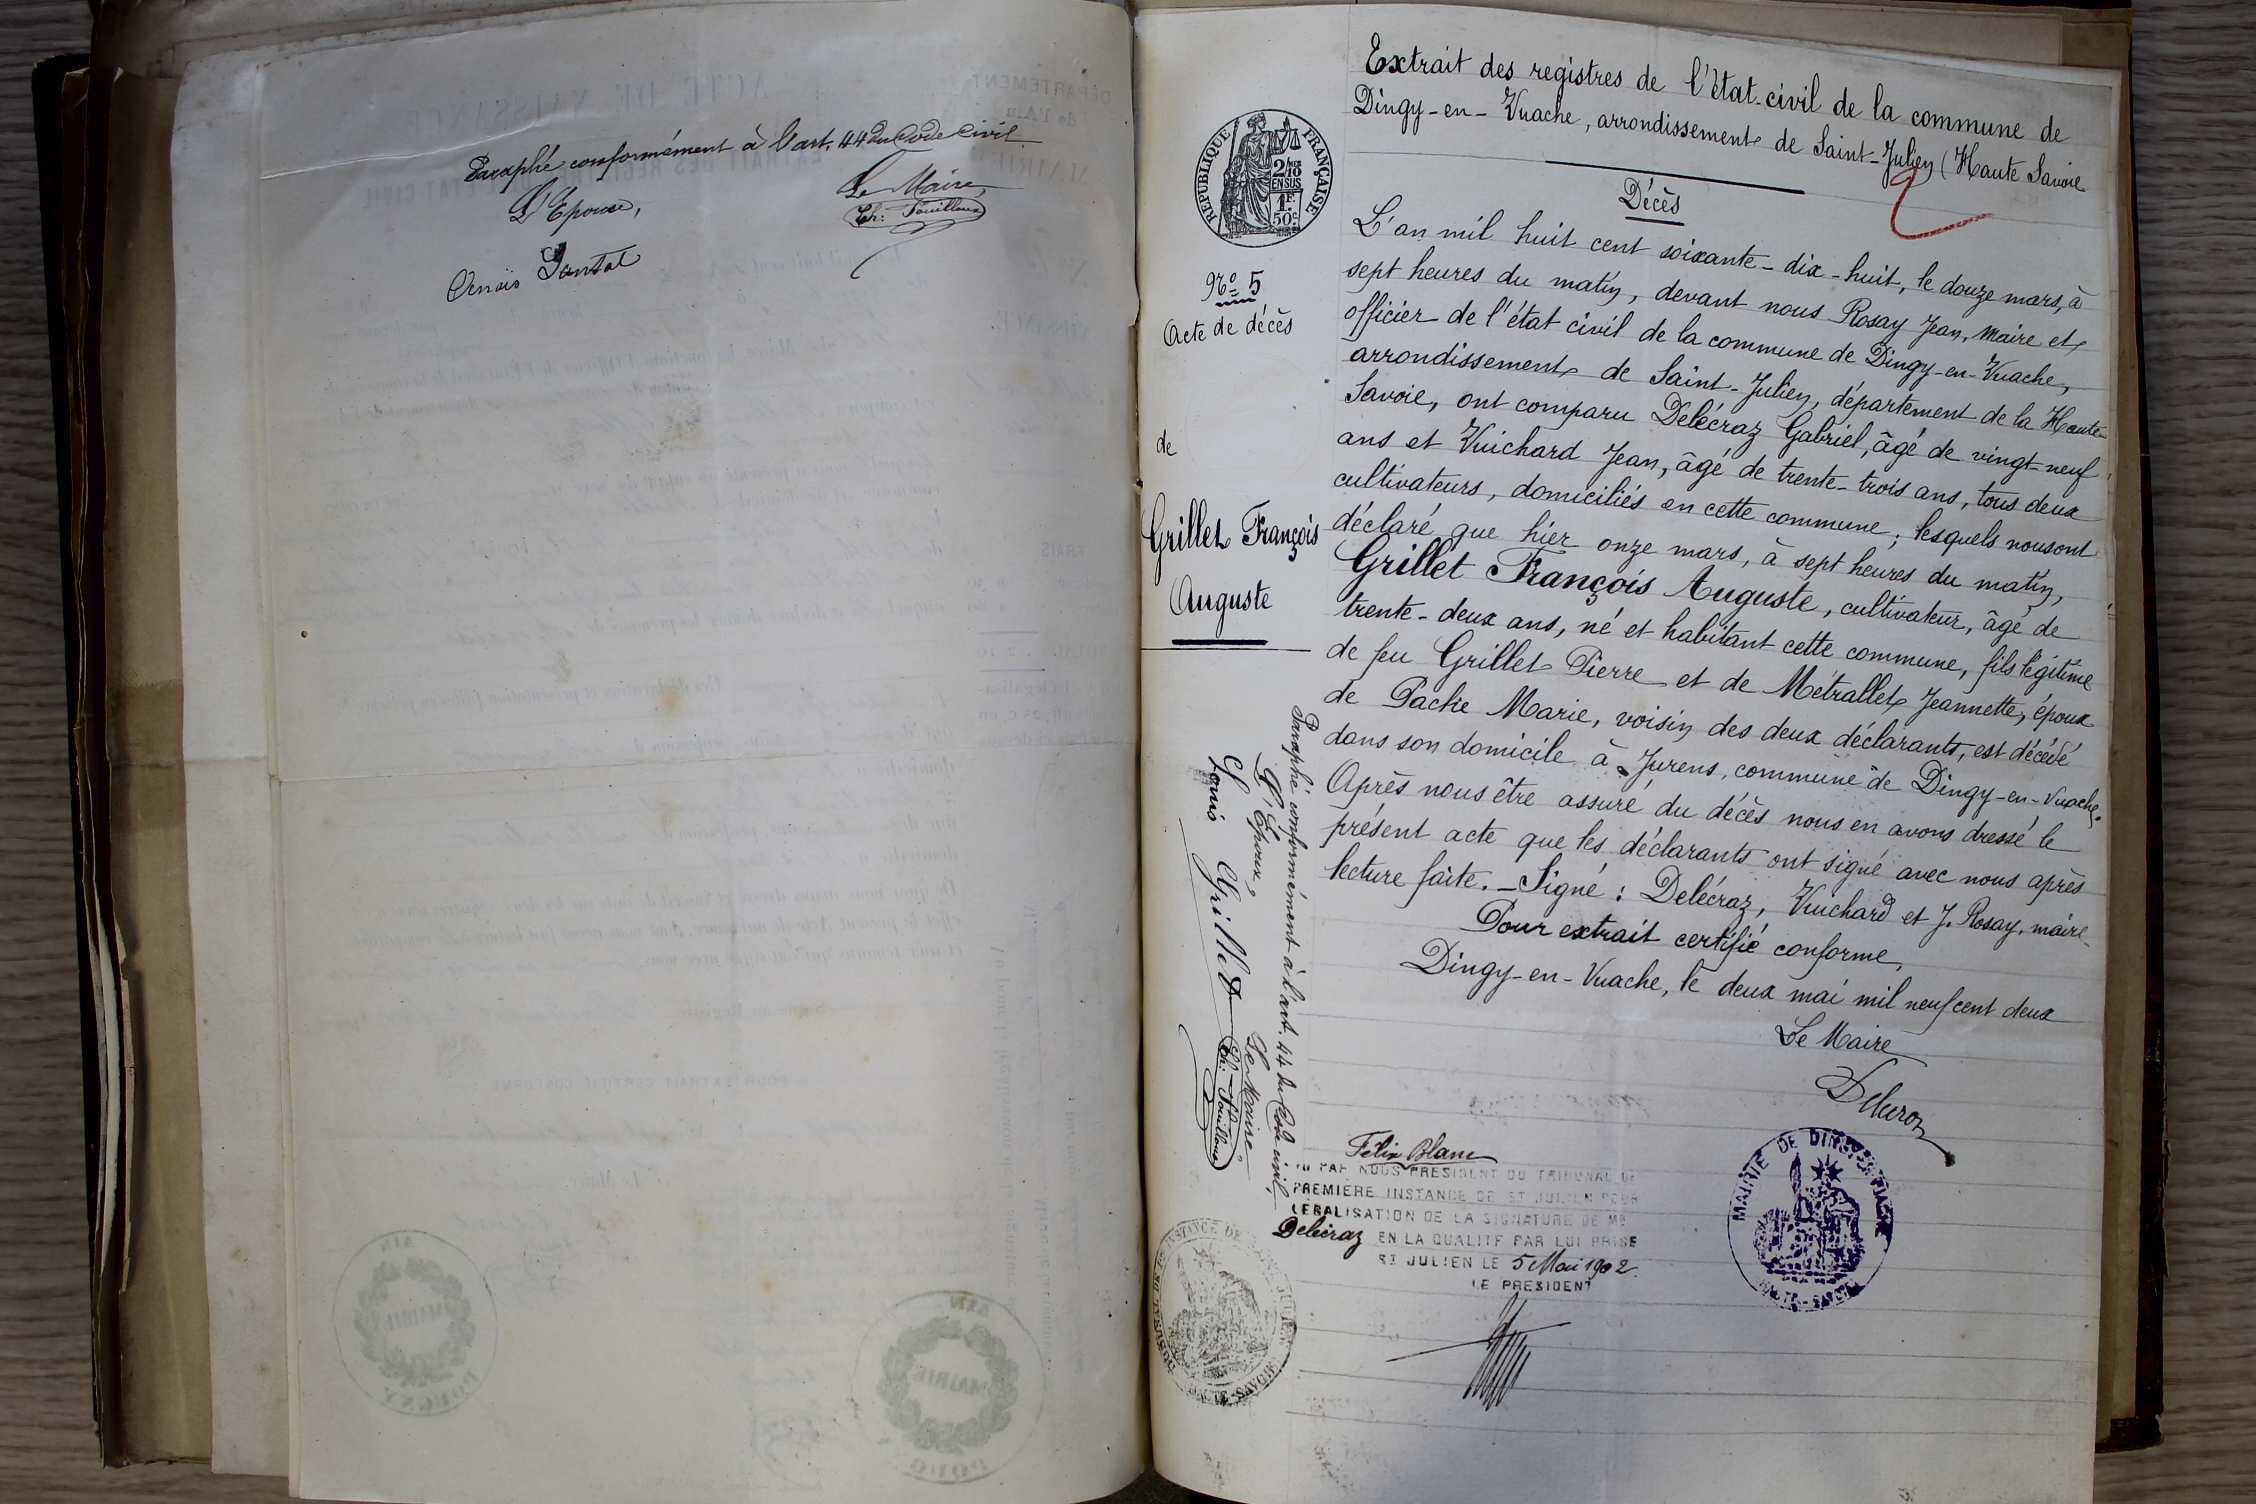 Paraphé conformément à l'art. 44 du Code Civil.
L'Epouse,
Le Maire,
Ch: Fouilloux
Santal
Extrait des registres de l'état-civil de la commune de
Dingy-en-Vuache, arrondissement de Saint-Julien (Haute Savoie
Décès
REPUBLIQUE FRANÇAISE
2/10
EN SUS
1F.
50c.
No 5
Acte de décès
de
Grillet François
Auguste
L'an mil huit cent soixante-dix-huit, le douze mars, à
sept heures du matin, devant nous Rosay Jean, Maire et
officier de l'état civil de la commune de Dingy-en-Vuache,
arrondissement de Saint-Julien, département de la Haute-
Savoie, ont comparu Delécraz Gabriel, âgé de vingt-neuf
ans et Vuichard Jean, âgé de trente-trois ans, tous deux
cultivateurs, domiciliés en cette commune; lesquels nous ont
déclaré que hier onze mars, à sept heures du matin,
Grillet François Auguste, cultivateur, âgé de
trente-deux ans, né et habitant cette commune, fils légitime
de feu Grillet Pierre et de Métrallet Jeannette, époux
de Pache Marie, voisin des deux déclarants, est décédé
dans son domicile à Jurens, commune de Dingy-en-Vuache.
Après nous être assuré du décès nous en avons dressé le
présent acte que les déclarants ont signé avec nous après
lecture faite. _ Signé: Delécraz, Vuichard et J. Rosay, maire_
Pour extrait certifié conforme,
Dingy-en-Vuache, le deux mai mil neuf cent deux
Le Maire
Paraphé conformément à l'art. 44 du Code civil,
L'Epoux,
Le Maire
Louis Grillet
Ch: Fouilloux
Félix Blanc
VU PAR NOUS PRESIDENT DU TRIBUNAL DE
PREMIERE INSTANCE DE ST JULIEN POUR
LEGALISATION DE LA SIGNATURE DE Mr
Delécraz EN LA QUALITE PAR LUI PRISE
ST JULIEN LE 5 Mai 1902.
LE PRESIDENT
MAIRIE DE DINGY-EN-VUACHE
HAUTE-SAVOIE